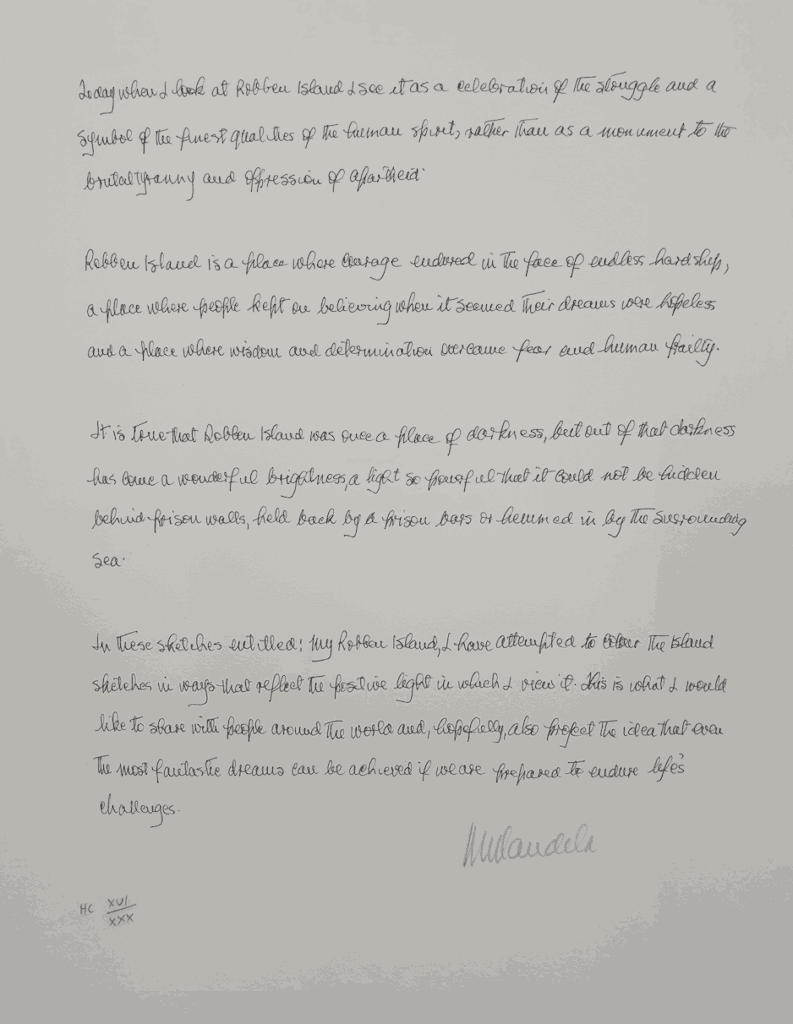 Today when I look at Robben Island I see it as a celebration of the struggle and a
symbol of the finest qualities of the human spirit, rather than as a monument to the
brutal tyranny and oppression of apartheid.
Robben Island is a place where courage endured in the face of endless hardship,
a place where people kept on believing when it seemed their dreams were hopeless
and a place where wisdom and determination overcame fear and human frailty.
It is true that Robben Island was once a place of darkness, but out of that darkness
has come a wonderful brightness, a light so powerful that it could not be hidden
behind prison walls, held back by a prison bars or hemmed in by the surrounding
sea.
In these sketches entitled; My Robben Island, I have attempted to colour the island
sketches in ways that reflect the positive light in which I view it. This is what I would
like to share with people around the world and, hopefully, also project the idea that even
the most fantastic dreams can be achieved if we are prepared to endure life's
challenges.
NMandela
HC XVI/XXX